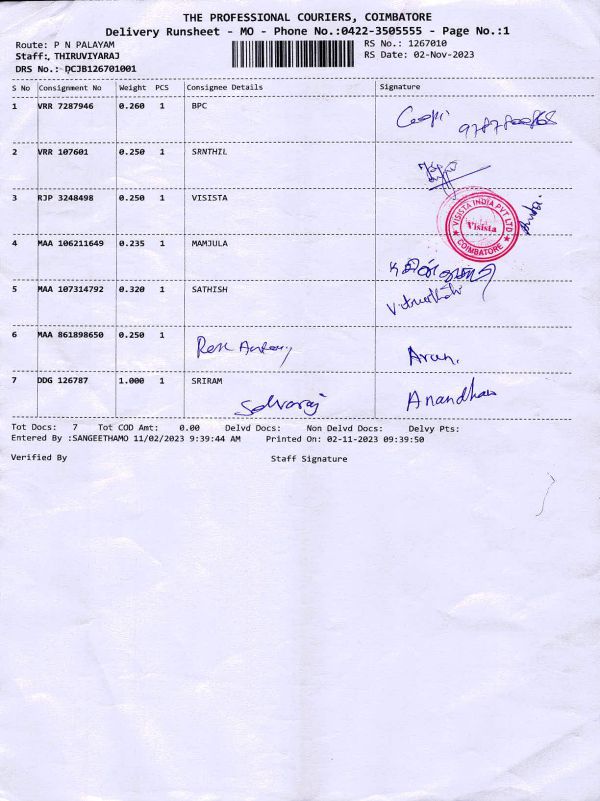 THE PROFESSIONAL COURIERS, COIMBATORE
Delivery Runsheet - MO - Phone No.:0422-3505555 - Page No.:1
Route: P N PALAYAM
RS No.: 1267010
Staff:, THIRUVIYARAJ
RS Date: 02-Nov-2023
DRS No.: DCJB126701001
S No Consignment No Weight PCS Consignee Details Signature
1 VRR 7287946 0.260 1 BPC
2 VRR 107601 0.250 1 SRNTHIL
3 RJP 3248498 0.250 1 VISISTA
VISISTA INDIA PVT LTD
Visista
★ COIMBATORE ★
4 MAA 106211649 0.235 1 MAMJULA
5 MAA 107314792 0.320 1 SATHISH
6 MAA 861898650 0.250 1 Arun.
7 DDG 126787 1.000 1 SRIRAM
Selvaraj
Tot Docs: 7 Tot COD Amt: 0.00 Delvd Docs: Non Delvd Docs: Delvy Pts:
Entered By :SANGEETHAMO 11/02/2023 9:39:44 AM Printed On: 02-11-2023 09:39:50
Verified By Staff Signature